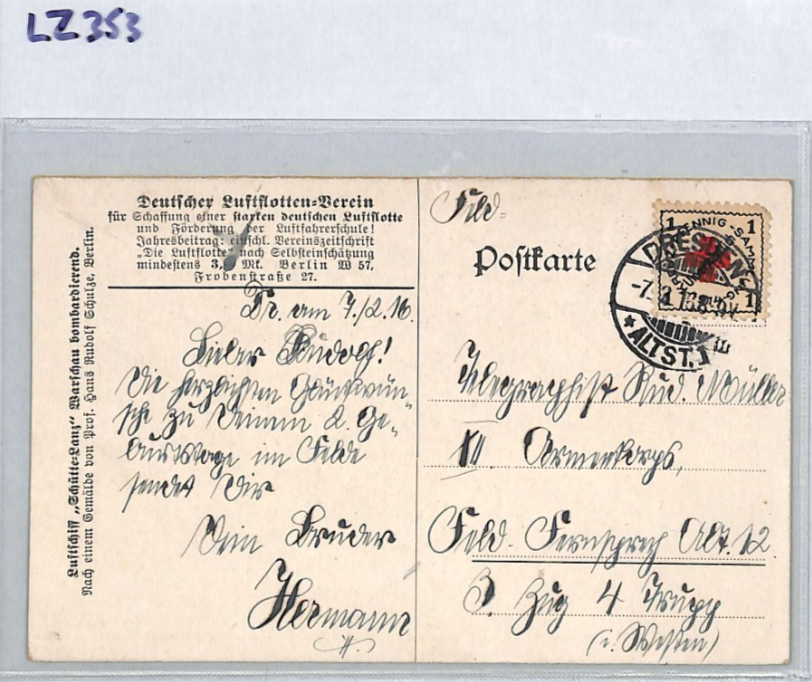 LZ353
Deutscher Luftflotten-Verein
für Schaffung einer starken deutschen Luftflotte
und Förderung der Luftfahrerschule!
Jahresbeitrag: einschl. Vereinszeitschrift
„Die Luftflotte" nach Selbsteinschätzung
mindestens 3,- Mk. Berlin W 57,
Frobenstraße 27.
Luftschiff „Schütte-Lanz" Warschau bombardierend.
Nach einem Gemälde von Prof. Hans Rudolf Schulze, Berlin.
Dr. am 7./2. 16.
Lieber Rudolf!
Die herzlichsten Glückwün-
sche zu Deinem 2. Ge-
burtstage im Felde
sendet Dir
Dein Bruder
Hermann
Feld-
Postkarte
1 PFENNIG 1
DRESDEN
ALTST. 1
1 1
Telegraphist Rud. Müller
Armeekorps,
Feld-Fernsprech Abt. 12
3. Zug 4 Trupp
(i. Westen)